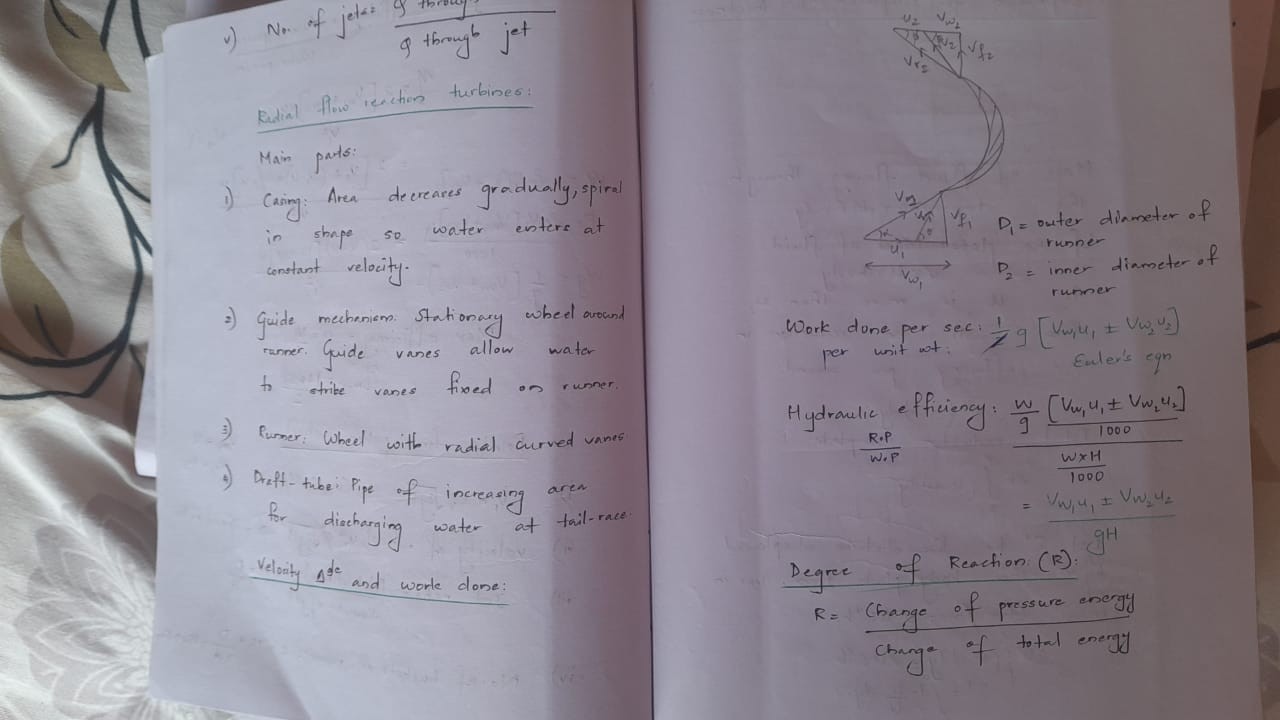 v) No. of jets = Q through
Q through jet
Radial flow reaction turbines:
Main parts:
1) Casing: Area decreases gradually, spiral
in shape so water enters at
constant velocity.
2) Guide mechanism: Stationary wheel around
runner. Guide vanes allow water
to stribe vanes fixed on runner.
3) Runner: Wheel with radial curved vanes.
4) Draft-tube: Pipe of increasing area
for discharging water at tail-race.
Velocity Δle and work done:
u2 Vw2
Vr2 V2 Vf2
V1 Vr1 Vf1
α θ
u1
Vw1
D1 = outer diameter of
runner
D2 = inner diameter of
runner
Work done per sec: 1/g [Vw1u1 ± Vw2u2]
per unit wt:
Euler's eqn
Hydraulic efficiency: W/g [Vw1u1 ± Vw2u2]
R.P
W.P
1000
W×H
1000
= Vw1u1 ± Vw2u2
gH
Degree of Reaction (R):
R = Change of pressure energy
Change of total energy